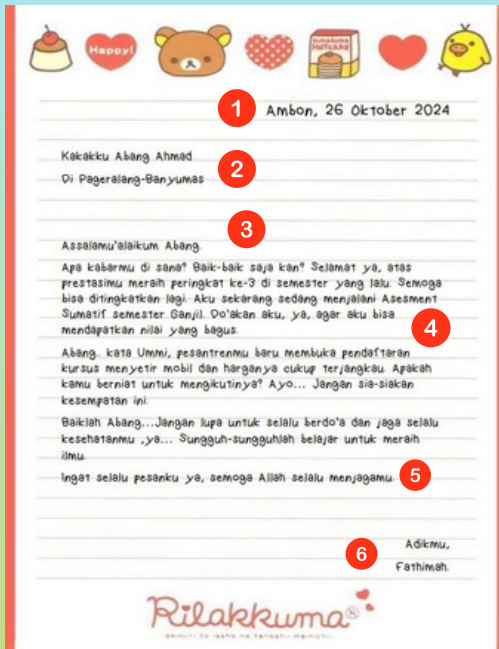 Happy!
HOTCAKE
1
Ambon, 26 Oktober 2024
Kakakku Abang Ahmad
Di Pageralang-Banyumas
2
3
Assalamu'alaikum Abang.
Apa kabarmu di sana? Baik-baik saja kan? Selamat ya, atas
prestasimu meraih peringkat ke-3 di semester yang lalu. Semoga
bisa ditingkatkan lagi. Aku sekarang sedang menjalani Asesment
Sumatif semester Ganjil. Do'akan aku, ya, agar aku bisa
mendapatkan nilai yang bagus.
4
Abang.. kata Ummi, pesantrenmu baru membuka pendaftaran
kursus menyetir mobil dan harganya cukup terjangkau. Apakah
kamu berniat untuk mengikutinya? Ayo... Jangan sia-siakan
kesempatan ini.
Baiklah Abang...Jangan lupa untuk selalu berdo'a dan jaga selalu
kesehatanmu ,ya... Sungguh-sungguhlah belajar untuk meraih
ilmu.
Ingat selalu pesanku ya, semoga Allah selalu menjagamu.
5
Adikmu,
6
Fathimah.
Rilakkuma®